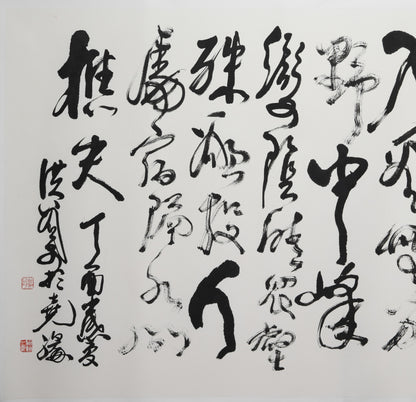 入看無分
野中峰
變陰晴眾壑
殊欲投人
處宿隔水問
樵夫 丁酉歲夏
洪 於堯